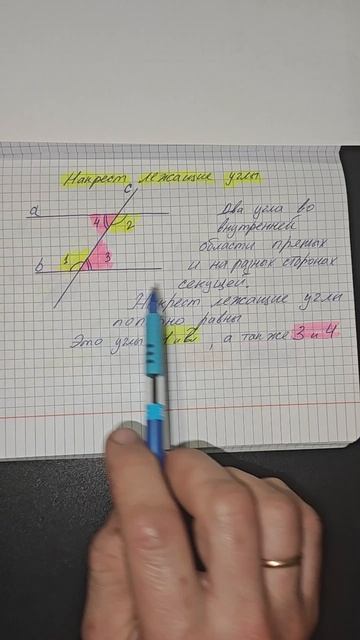 Накрест лежащие углы
c
a
4
2
b
1
3
Два угла во
внутренней
области прямых
и на разных сторонах
секущей.
лежащие углы
попарно равны
Это углы 1 и 2, а также 3 и 4